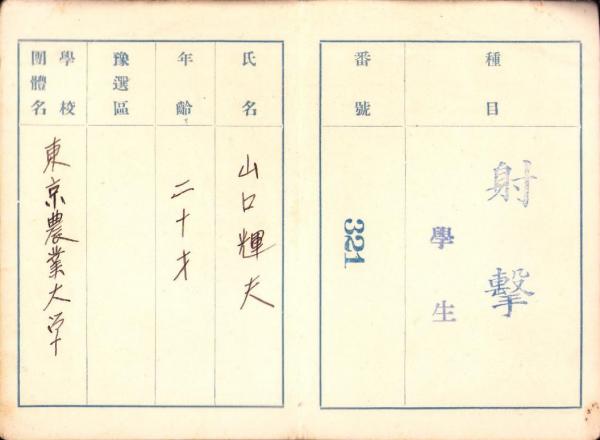 種目
射擊
學生
番號
321
氏名
山口輝夫
年齡
二十才
豫選區
學校
團體名
東京農業大学